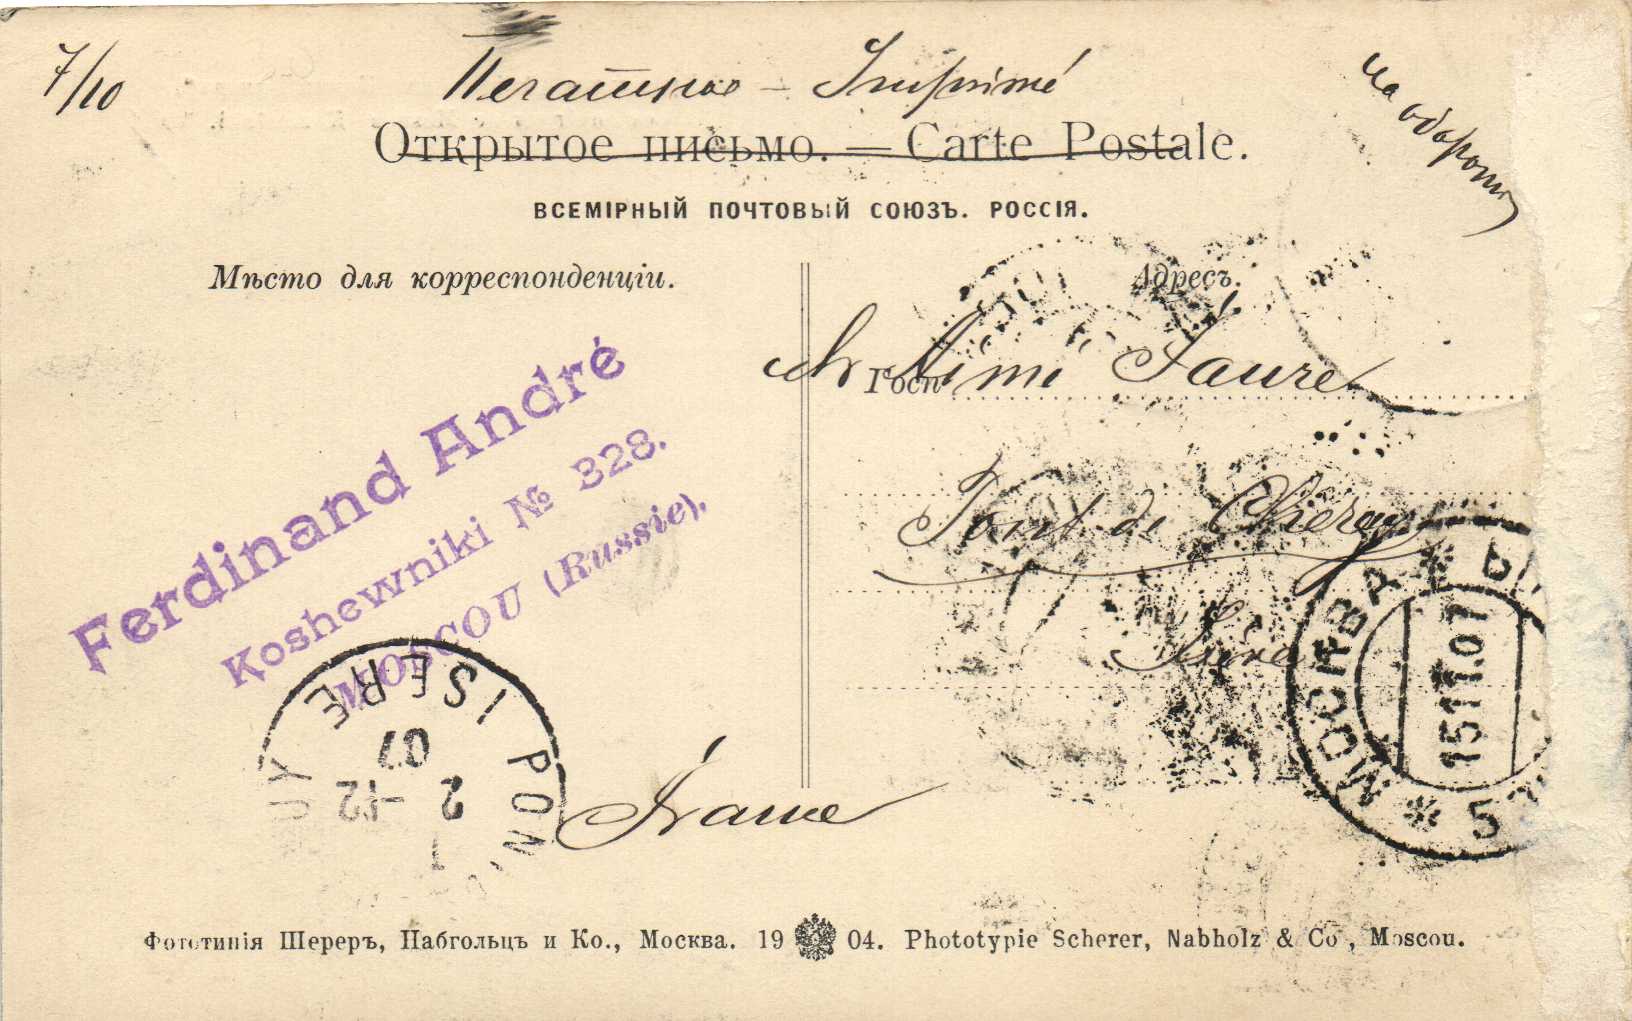 7/10
Печатное – Imprimé
на обороте
Открытое письмо. — Carte Postale.
ВСЕМІРНЫЙ ПОЧТОВЫЙ СОЮЗЪ. РОССІЯ.
Мѣсто для корреспонденціи.
Адресъ.
Госп
Mr Aimé Faure
Pont de Chéruy
Isère
France
Ferdinand André
Koshewniki № 328.
MOSCOU (Russie).
МОСКВА
15.11.07
PON
ISERE
2 -12
07
Фототипія Шереръ, Набгольцъ и Ко., Москва. 19 04. Phototypie Scherer, Nabholz & Co, Moscou.